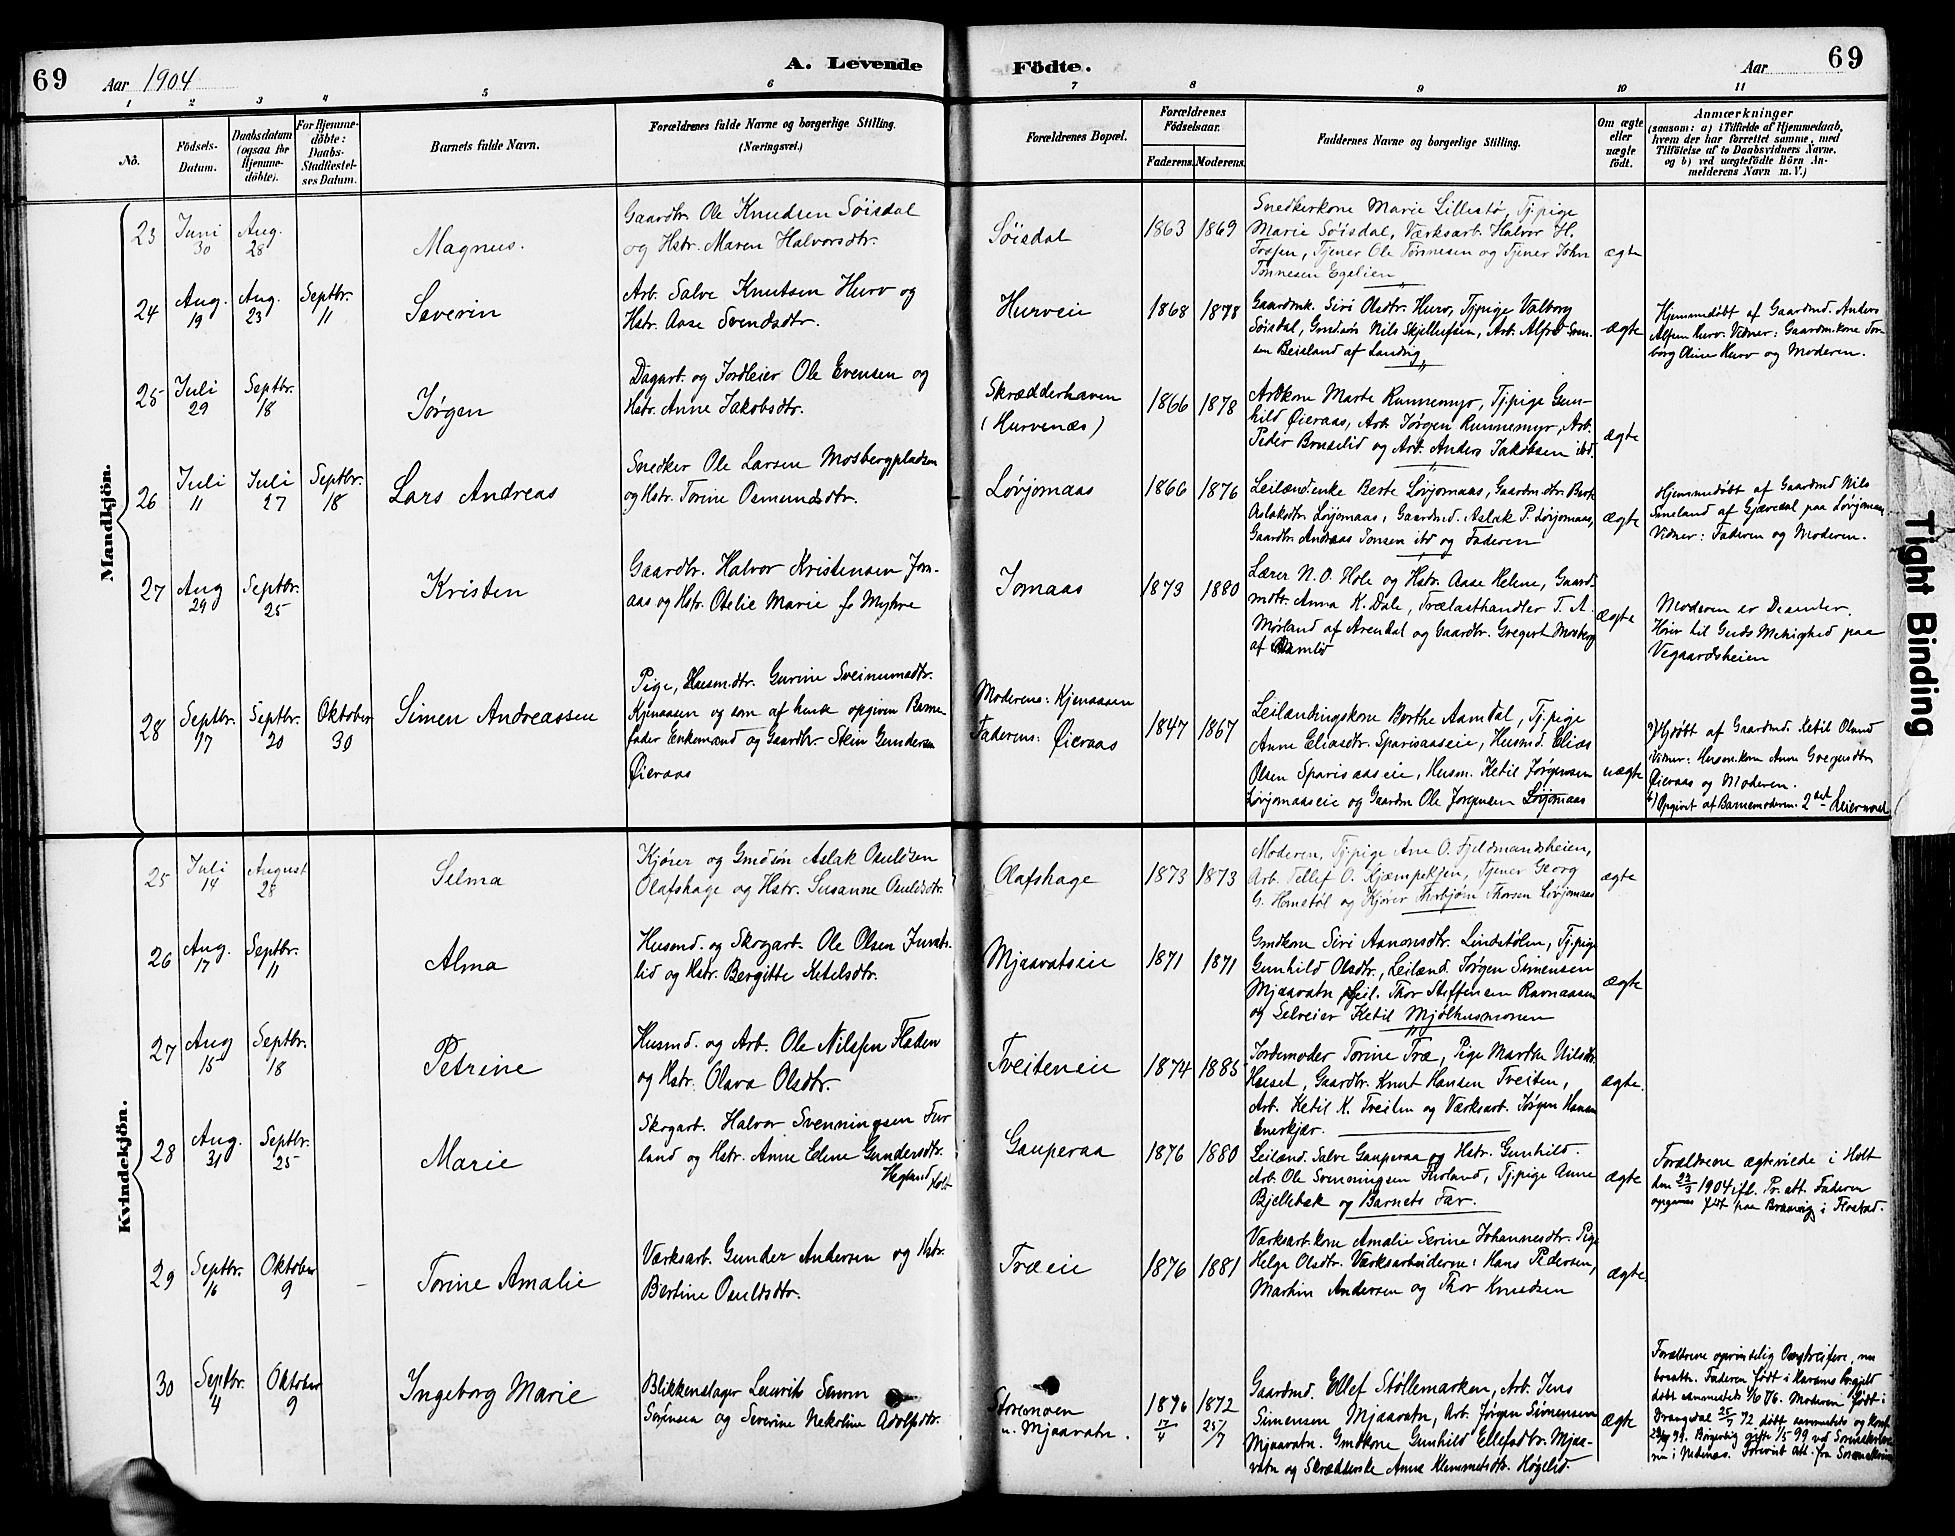 69
Aar 1904
A. Levende
Födte.
Aar
69
1 2 3 4 5 6 7 8 9 10 11
No.
Födsels-
Datum.
Daabsdatum
(ogsaa for
Hjemme-
döbte).
For Hjemme-
döbte:
Daabs-
Stadfæstel-
ses Datum.
Barnets fulde Navn.
Forældrenes fulde Navne og borgerlige Stilling.
(Næringsvei.)
Forældrenes Bopæl.
Forældrenes
Födselsaar.
Faderens. Moderens.
Faddernes Navne og borgerlige Stilling.
Om ægte
eller
uægte
födt.
Anmærkninger
(saasom: a) i Tilfælde af Hjemmedaab,
hvem der har forrettet samme, med
Tilföielse af to Daabsvidners Navne,
og b) ved uægtefödte Börn An-
melderens Navn m. V.)
Mandkjön.
23
Juni
30
Aug.
28
Magnus.
Gaardbr. Ole Knudsen Söisdal
og Hstr. Maren Halvorsdtr.
Söisdal
1863 1869
Snedkerkone Marie Lillestö, Tj.pige
Marie Söisdal, Værksarb. Halvor H.
Fosjen, Tjener Ole Tönnesen og Tjener John
Tönnesen Egelien
ægte
24
Aug.
19
Aug.
23
Septbr.
11
Severin
Arb. Salve Knutsen Hurv og
Hstr. Aase Svendsdtr.
Hurveie
1868 1878
Gaardmk. Siri Olsdtr. Hurv, Tj.pige Valborg
Söisdal, Gmdsön Nils Skjellufsen, Arb. Alfred Sven-
sen Beisland af Landvig
ægte
Hjemmedöbt af Gaardmd. Anders
Alfsen Hurv. Vidner: Gaardm.kone Tor-
borg Oline Hurv og Moderen.
25
Juli
29
Septbr.
18
Jörgen
Dagarb. og Jordleier Ole Evensen og
Hstr. Anne Jakobsdtr.
Skrædderhaven
(Hurvenæs)
1866 1878
Arb.kone Marte Runnemyr, Tj.pige Gun-
hild Öieraas, Arb. Jörgen Runnemyr, Arb.
Peder Bruselid og Arb. Anders Jakobsen ibd.
ægte
26
Juli
11
Juli
27
Septbr.
18
Lars Andreas
Snedker Ole Larsen Mosbergpladsen
og Hstr. Torine Osmundsdtr.
Lövjomaas
1866 1876
Leilændenke Berte Lövjomaas, Gaardmdtr. Berte
Aslaksdtr. Lövjomaas, Gaardmd. Aslak P. Lövjomaas,
Gaardbr. Andreas Jensen ibd og Faderen
ægte
Hjemmedöbt af Gaardmd Nils
Smeland af Gjövedal paa Lövjomaas
Vidner: Faderen og Moderen.
27
Aug
29
Septbr.
25
Kristen
Gaardbr. Halvor Kristensen Jom-
aas og Hstr. Otelie Marie f. Myhre
Jomaas
1873 1880
Lærer N. O. Hole og Hstr. Aase Helene, Gaard-
mdtr. Anna K. Dale, Trælasthandler T. A.
Mörland af Arendal og Gaardbr. Gregert Mosberg
af Aamlid
ægte
Moderen er Dissenter.
Hörer til Guds Menighed paa
Vegaardsheien
28
Septbr.
17
Septbr.
20
Oktober
30
Simen Andreassen
Pige, Husm.dtr. Gurine Sveinumsdtr.
Kjenaasen og som af hende opgiven Barne-
fader Enkemand og Gaardbr. Stein Gundersen
Öieraas
Moderens: Kjenaasen
Faderens: Öieraas
1847 1867
Leilændingskone Berthe Aamdal, Tj.pige
Anne Eliasdtr. Sparisaaseie, Husmd. Elias
Olsen Sparisaaseie, Husm. Ketil Jörgensen
Lövjomaaseie og Gaardm Ole Jörgensen Lövjomaas
uægte
a) Hjdöbt af Gaardmd. Ketil Olsund
Vidner: Husm.kone Anne Gregersdtr
Öieraas og Moderen.
b) Opgivet af Barnemoderen. 2det Leiermaal
Kvindekjön.
25
Juli
14
August
28
Selma
Kjörer og Gmdsön Aslak Osuldsen
Olafshage og Hstr. Susanne Osuldsdtr.
Olafshage
1873 1873
Moderen, Tj.pige Ane O. Fjeldmandsheien,
Arb. Tellef O. Kjæmpekjen, Tjener Georg
G. Hemstöl og Kjörer Thorbjörn Thorsen Lövjomaas
ægte
26
Aug.
17
Septbr.
11
Alma
Husmd. og Skogarb. Ole Olsen Juvats-
lid og Hstr. Bergitte Ketelsdtr.
Mjaavatseie
1871 1871
Gmdkone Siri Aanonsdtr. Lindstölen, Tj.pige
Gunhild Olsdtr., Leilænd. Jörgen Simensen
Mjaavatn, Leil. Thor Steffensen Ravnaasen
og Selveier Ketil Mjölhusmonen
ægte
27
Aug
15
Septbr.
18
Petrine
Husmd. og Arb. Ole Nilsen Flaten
og Hstr. Olava Olsdtr.
Tveiteneie
1874 1885
Jordemoder Torine Træ, Pige Marthe Nilsdtr.
Heiset, Gaardbr. Knut Hansen Tveiten,
Arb. Ketil K. Tveiten og Værksarb. Jörgen Hansen
Enerkjær.
ægte.
28
Aug.
31
Septbr.
25
Marie
Skogarb. Halvor Svenningsen Fur-
land og Hstr. Anne Elene Gundersdtr.
Hegland Holt
Gauperaa
1876 1880
Leilænd. Salve Gauperaa og Hstr. Gunhild.
Arb. Ole Svenningsen Furland, Tj.pige Anne
Bjellebæk og Barnets Far.
ægte
Forældrene ægteviede i Holt
den 22/3 1904 ifl. Pr. att. Faderen
opgives födt paa Bræavig i Flostad.
29
Septbr.
16
Oktober
9
–
Torine Amalie
Værksarb. Gunder Andersen og Hstr.
Bertine Osuldsdtr.
Træeie
1876 1881
Værksarb.kone Amalie Serine Johannesdtr. Pige
Helga Olsdtr. Værksarbeiderne: Hans Pedersen,
Martin Andersen og Thor Knudsen
ægte
30
Septbr.
4
Oktober
9
Ingeborg Marie
Blikkenslager Laurits Senum
Sörensen og Severine Nekoline Adolfsdtr.
Storemoen
u. Mjaavatn.
1876
17/4
1872
25/7
Gaardmd. Ellef Stöllemarken, Arb. Jens
Simensen Mjaavatn, Arb. Jörgen Simensen
Mjaavatn. Gmdkone Gunhild Ellefsdtr. Mjaa-
vatn og Skrædderske Anne Klemmetsdtr. Högelid.
ægte
Forældrene oprindelig Omstreifere, nu
bosatte. Faderen födt i
döbt sammesteds 76. Moderen födt i
Drangedal 25/7 72 döbt sammesteds og konf.
99. Borgerlig gifte 1/5 99 ved Sorenskrive-
ren i Nedenes. Forevist att. fra Sorenskriveren
Tight Binding